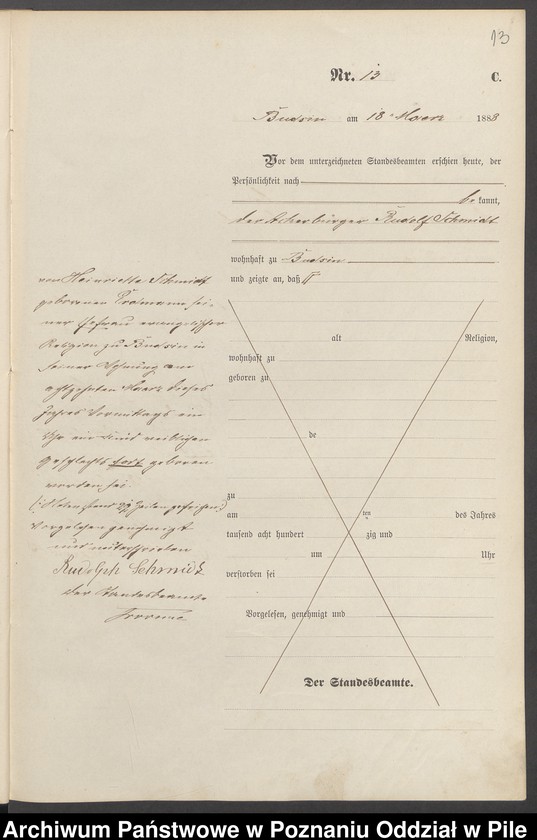 13
Nr. 13 C.
Budsin am 18 Maerz 1883
Vor dem unterzeichneten Standesbeamten erschien heute, der
Persönlichkeit nach
bekannt,
der Ackerbürger Rudolf Schmidt
wohnhaft zu Budsin
und zeigte an, daß
von Heinriette Schmidt
geborenen Erdmann sei-
ner Ehefrau evangelischer
Religion zu Budsin in
seiner Wohnung am
achtzehnten Maerz dieses
Jahres Vormittags ein
Uhr ein Kind weiblichen
Geschlechts todt geboren
worden sei
Vorgelesen genehmigt
und unterschrieben
Rudolph Schmidt
der Standesbeamte
alt Religion,
wohnhaft zu
geboren zu
de
zu
am ten des Jahres
tausend acht hundert zig und
um Uhr
verstorben sei
Vorgelesen, genehmigt und
Der Standesbeamte.
Archiwum Państwowe w Poznaniu Oddział w Pile